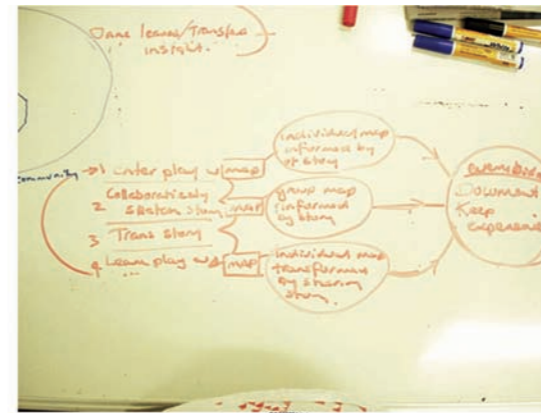 insight.
community
1 enter play w map
2 Collaboratively
sketch story map
3 Trans story
4 Learn play w map
...
individual map
informed by
story
group map
informed
by story
individual map
transformed
by sharing
story
Document
Keep